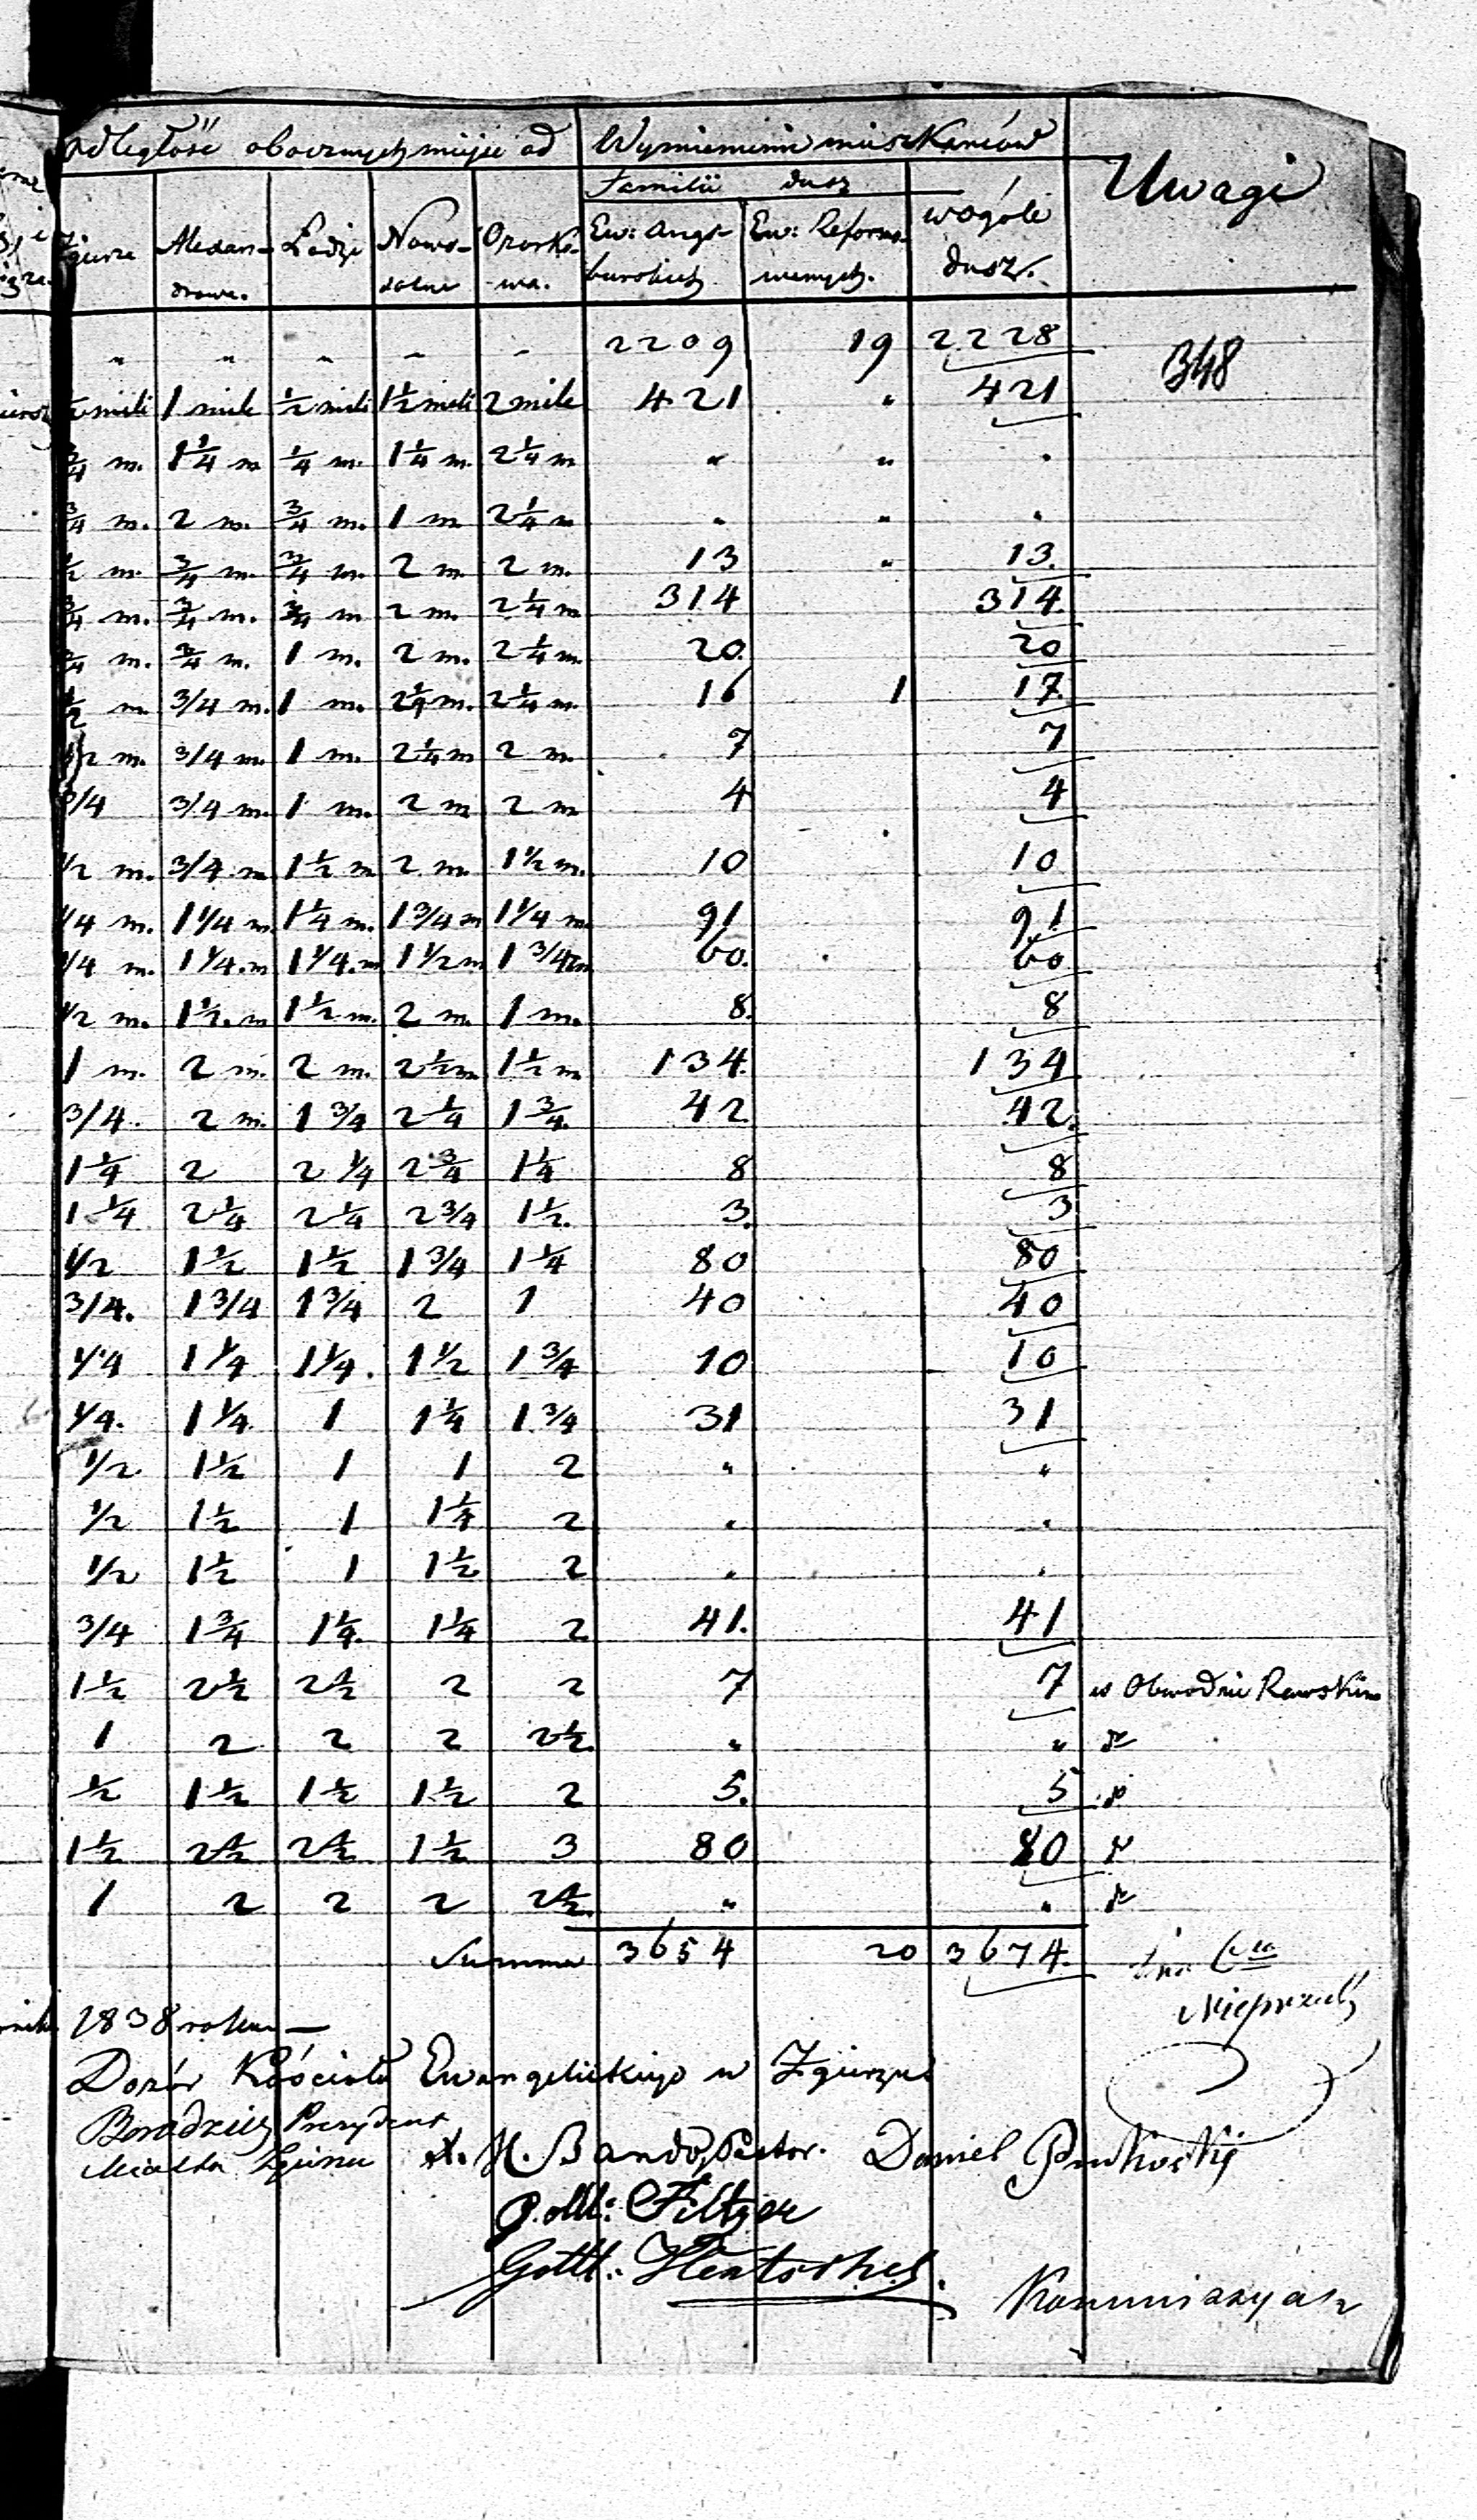 odległość obocznych miejsc od Wymienienie mieszkańców Uwagi
Familii dusz
Zgierza Alexan- Łodzi Nowo- Ozorko- Ew: Augs- Ew: Reform- wogóle
drowa. solna wa. burskich wanych. dusz.
" " " " " 2209 19 2228 348
½ mili 1 mile ½ mili 1½ mili 2 mile 421 " 421
¾ m. 1¼ m ¼ m. 1¼ m. 2¼ m " " "
¾ m. 2 m. ¾ m. 1 m 2¼ m " " "
½ m. ¾ m. ¾ m. 2 m. 2 m. 13 " 13.
¾ m. ¾ m. ¾ m 2 m. 2¼ m 314 314.
¾ m. ¾ m. 1 m. 2 m. 2¼ m. 20. 20
½ m. 3/4 m. 1 m. 2¼ m. 2¼ m. 16 1 17.
1/2 m. 3/4 m. 1 m. 2¼ m 2 m. 7 7
3/4 3/4 m. 1 m. 2 m 2 m 4 4
1/2 m. 3/4 m 1½ m 2 m. 1½ m. 10 10
1/4 m. 1 1/4 m 1¼ m. 1 3/4 m 1 1/4 m 91 91
1/4 m. 1 1/4 m 1 1/4 m 1 1/2 m 1 3/4 m 60. 60
1/2 m. 1½ m 1½ m. 2 m. 1 m. 8. 8
1 m. 2 m. 2 m. 2½ m 1½ m 134. 134
3/4. 2 m. 1 3/4 2¼ 1¾. 42 42.
1¼ 2 2 1/4 2¾ 1¼ 8 8
1¼ 2¼ 2¼ 2 3/4 1½. 3. 3
1/2 1½ 1½ 1 3/4 1¼ 80 80
3/4. 1 3/4 1 3/4 2 1 40 40
1/4 1 1/4 1 1/4. 1 1/2 1 3/4 10 10
1/4. 1 1/4 1 1¼ 1 3/4 31 31
1/2 1½ 1 1 2 " "
1/2 1½ 1 1¼ 2 " "
1/2 1½ 1 1½ 2 " "
3/4 1¾ 1¼. 1¼ 2 41. 41
1½ 2½ 2½ 2 2 7 7 w Obwodzie Rawskim
1 2 2 2 2½ " " d°
½ 1½ 1½ 1½ 2 5. 5 d°
1½ 2½ 2½ 1½ 3 80 80 d°
1 2 2 2 2½ " " d°
Summa 3654 20 3674.
1838 roku —
Dozór Kościoła Ewangelickiego w Zgierzu
Prezydent
Miasta Zgierza
Pastor. Daniel
Gottl: Filtzer
Gottl: Hentschel.